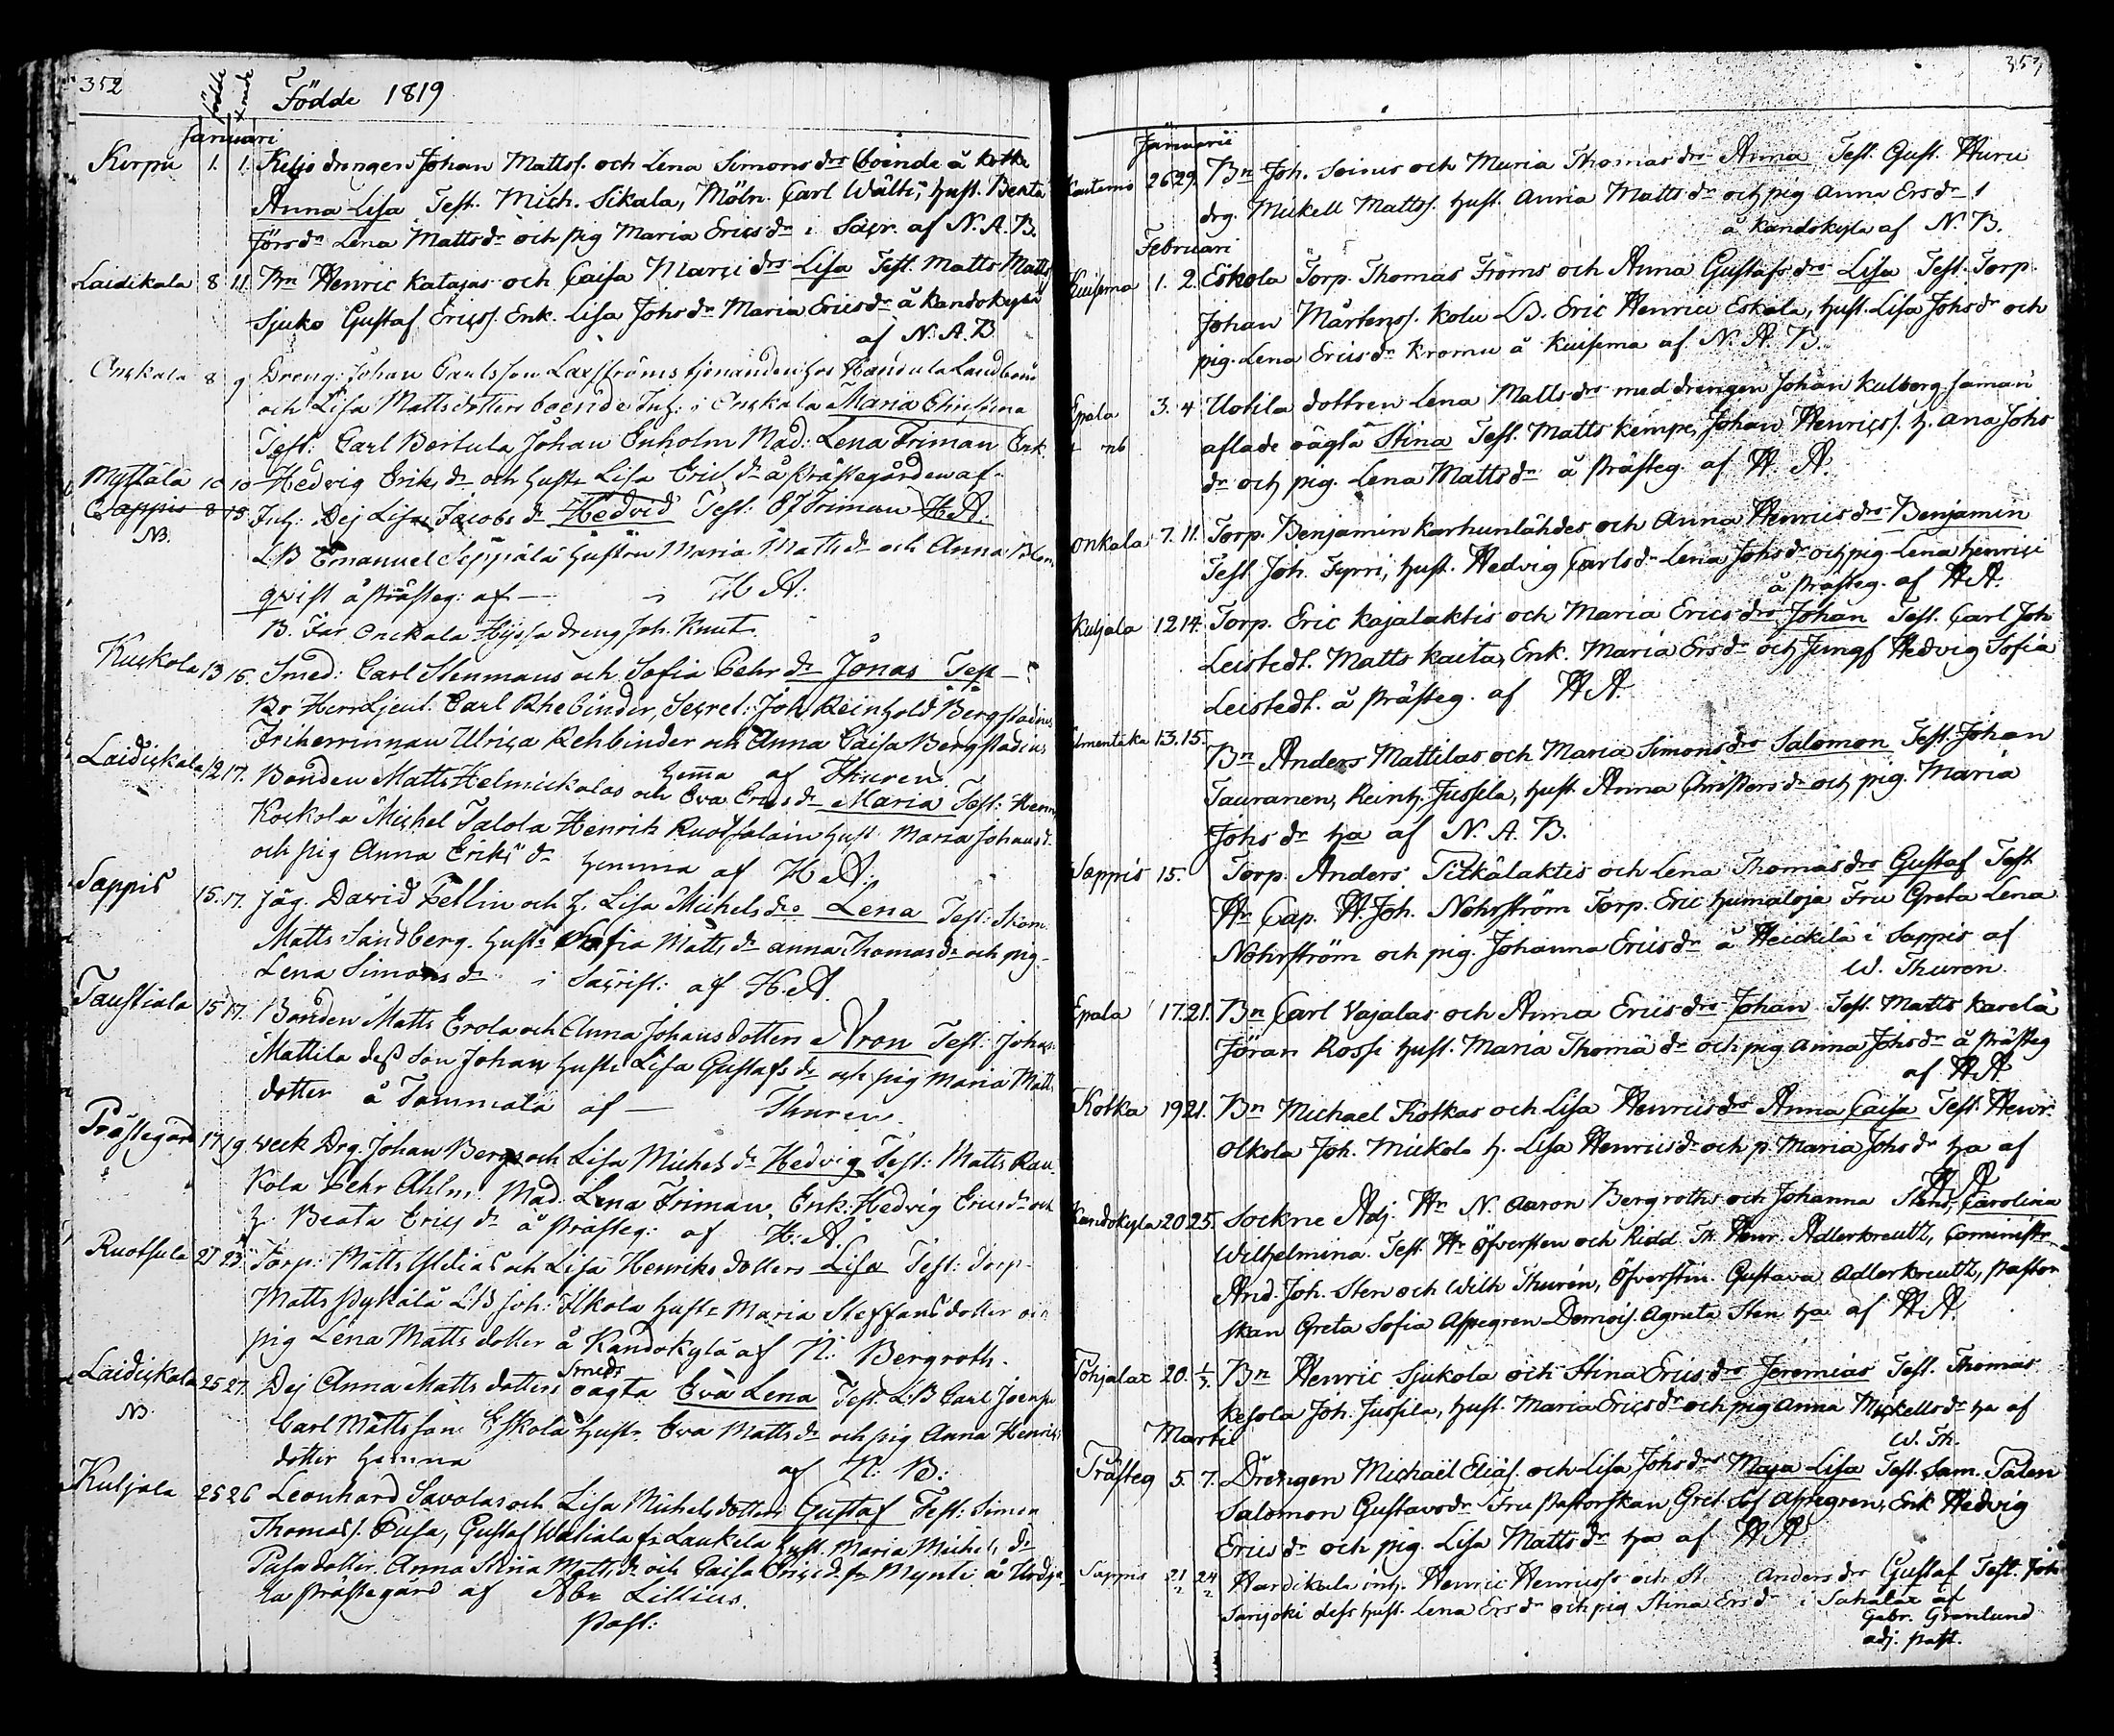 352
födde
Xnade
Födde 1819
Januari
Kerpu 1. 1. Keljo drengen Johan Mattss. och Lena Simons drs boende å Kotka
Anna Lisa Test. Mich. Sikala, Möln. Carl Wälti, hust. Beata
Jörs dr Lena Matts dr och pig Maria Erics dr i Sacr. af N. A. B.
Laidikala 8 11 Bn Henric Katajas och Caisa Marci drs Lisa Test. Matts Matts
Sjuko Gustaf Ericss. Enk. Lisa Johs dr Maria Erics dr å Kandokylä
af N. A. B
Onkala 8 9 Dreng: Johan Carlsson Laxströms tjenande hos Handula Landbond
och Lisa Mattsdotters boende Inh: i Onkala Maria Christina
Test: Carl Bertula Johan Enholm Mad: Lena Friman Enk.
Hedvig Eriks dr och hustr Lisa Erics dr å Prästegården af
Myttälä 10 10
Sappis 8 15 Inh: Dej Lisa Jacobs dr Hedvid Test: Friman H A.
NB.
LB Emanuel Seppälä hustru Maria Matts dr och Anna Blom
qvist å prästeg: af — H A:
B. Far Onkala Hyssä dreng Joh. Knut
Kuskola 13 15. Smed: Carl Stenmans och Sofia Pehr dr Jonas Test —
Br Herr Ljeut. Carl Rhebinder, Secret: Joh Reinhold Bergstadius
Friherrinnan Ulrica Rehbinder och Anna Caisa Bergstadius
hema af Thuren
Laidickala 12 17. Bonden Matts Helmickalas och Eva Erics dr Maria Test: Henr
Kockola Michel Talola Henrik Ruottalain hust Maria Johans d
och pig Anna Eriks dr hemma af H A:
Sappis 15. 17. Jäg. David Fellin och h. Lisa Michels drs Lena Test: Skom
Matts Sandberg. hustr Sofia Matts dr Anna Thomas dr och pig
Lena Simons dr i Sacrist: af H. A
Taustiala 15 17. Bonden Matts Erola och Anna Johans dotters Aron Test: Johan
Mattila dess Son Johan hustr Lisa Gustafs dr och pig Maria Matts
dotter å Tammiala af — Thuren
Prästegård 17 19 Weck Drg. Johan Bergs och Lisa Michels dr Hedvig Test: Matts Rau
kola Pehr Ahlm. Mad. Lena Friman, Enk: Hedvig Erics dr och
h. Beata Erics dr å prästeg: af H: A.
Ruotsula 21 23. Torp: Matts Yliliäs och Lisa Henriks dotters Lisa Test: Torp
Matts Pykälä LB Joh: Ilkola hustr Maria Steffans dotter och
pig Lena Matts dotter å Kandokylä af N: Bergroth.
Laidickala 25 27. Dej Anna Matts dotters oägta Eva Lena Test. LB Carl
NB.
Carl Mattsson Eskola hustr Eva Matts dr och pig Anna Henrics
dotter hemma af N: B:
Kuljala 25 26 Leonhard Savolas och Lisa Michels dotters Gustaf Test: Simon
Thomass. Pusa, Gustaf Waliala fr Laukela hust. Maria Michels dr
Pusa dotter Anna Stina Matts dr och Caisa Erics d fr Mynti å Urdja
la prästegård af Abr Lillius.
Past:
353
Januarii
Kautemo 26 29. Bn Joh. Soinis och Maria Thomas drs Anna Test. Gust. Huru
drg. Mickell Mattss. hust. Anna Matts dr och pig Anna Ers dr
å Kandokyla af N. B.
Februari
Kuisema 1. 2. Eskola Torp. Thomas Froms och Anna Gustafs drs Lisa Test. Torp.
Johan Mårtenss. Kolu LB. Eric Henrici Eskola, hust. Lisa Johs dr och
pig. Lena Erics dr Kromu å Kuisema af N. A B.
Epala 3. 4 Uotila dottren Lena Matts drs med drengen Johan Kulberg saman
+ nb aflade oägta Stina Test. Matts Kempe, Johan Henricss. h. Ana Johs
dr och pig. Lena Matts dr å Prästeg. af H A.
Onkala 7. 11. Torp. Benjamin Karhunlähdes och Anna Henrics drs Benjamin
Test. Joh. Fyrri, hust. Hedvig Carls dr Lena Johs dr och pig Lena Henrici
å Prästeg. af H A.
Kuljala 12 14. Torp. Eric Kajalaktis och Maria Erics drs Johan Test. Carl Joh
Leistedt. Matts Kaita, Enk. Maria Ers dr och Jungf Hedvig Sofia
Leistedt. å Prästeg. af H A.
Elmentaka 13. 15. Bn Anders Mattilas och Maria Simons drs Salomon Test. Johan
Tauranen, Reinh. Jussila, hust. Anna Christers dr och pig. Maria
Johs dr ha af N. A. B.
Sappis 15. Torp. Anders Titkälaktis och Lena Thomas drs Gustaf Test.
Hr Cap. H. Joh. Nohrström Torp. Eric Humaloja Fru Greta Lena
Nohrström och pig. Johanna Erics dr å Heickilä i Sappis af
W. Thuren.
Epala 17. 21. Bn Carl Vajalas och Anna Erics drs Johan Test. Matts Karela
Jöran Rossi hust. Maria Thomä dr och pig Anna Johs dr å Prästeg
af H A.
Kotka 19 21. Bn Michael Kotkas och Lisa Henrics drs Anna Caisa Test. Henr.
Olkola Joh. Mickola h. Lisa Henrics dr och p. Maria Johs dr ha af
H A
Kandokyla 20 25. Sockne Adj. Hr N. Aaron Bergroths och Johanna Stens, Carolina
Wilhelmina. Test. Hr Öfversten och Ridd. Th. Henr. Adlerkreutz, Comministr
And. Joh. Sten och Wilh Thurén, Öfverstin. Gustava Adlerkreutz, Pastor
skan Greta Sofia Aspegren Demois. Agneta Sten ha af H A.
Pohjalax 20. 1/3. Bn Henric Sjukola och Stina Erics drs Jeremias Test. Thomas
Kesola Joh. Jussila, hust. Maria Erics dr och pig Anna Mickells dr ha af
W. Th.
Martii
Prästeg 5. 7. Drengen Michael Eliäs. och Lisa Johs drs Maja Lisa Test. Sam. Talen
Salomon Gustavs dr Fru Pastorskan Gret. Sof. Aspegren, Enk Hedvig
Erics dr och pig. Lisa Matts dr ha af H A
Sappis 21 24 Hardikala inh. Henric Henricss och St. Anders drs Gustaf Test. Joh
Sarijoki dess hust. Lena Ers dr och pig Stina Ers dr i Sahalax af
Gabr. Grönlund
adj. Past.